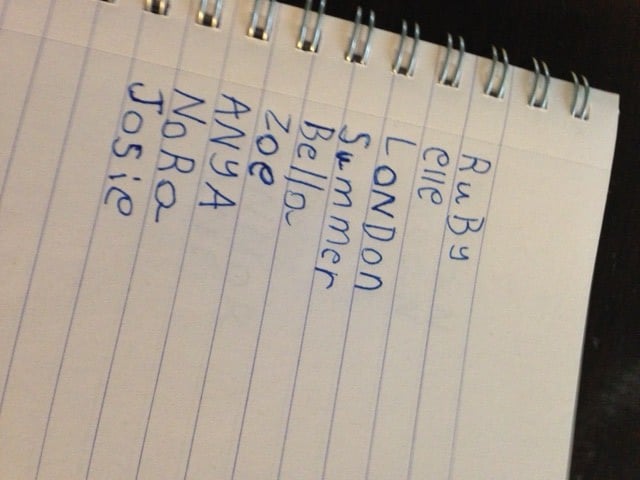 RuBy
elle
LONDON
Summer
Bella
Zoe
ANyA
NoRa
Josie